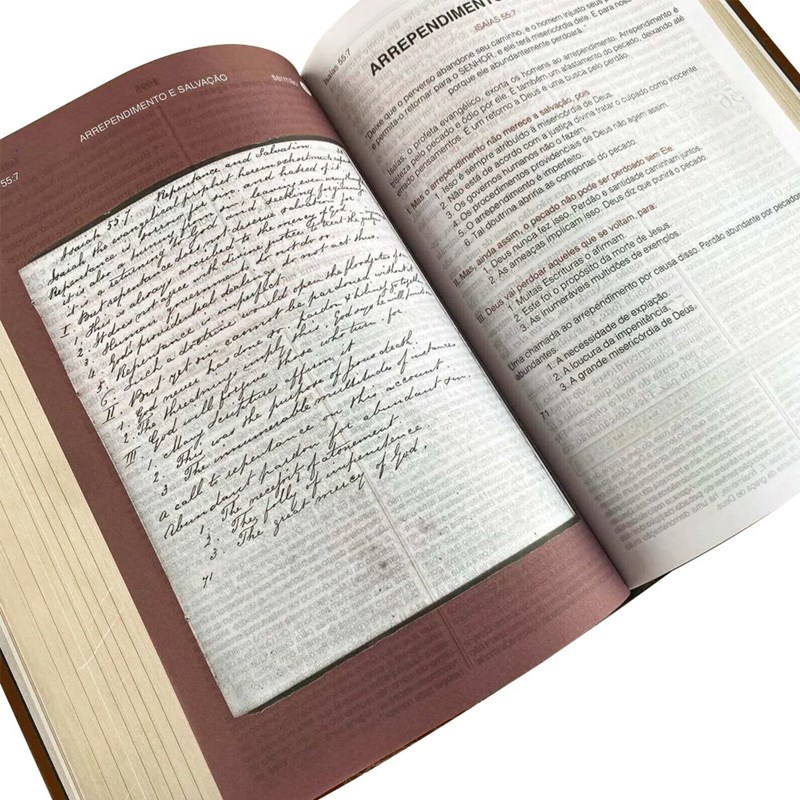 55:7
ARREPENDIMENTO E SALVAÇÃO
Isaiah 55.7 Repentance and Salvation
Isaiah the evangelical prophet herein exhorts men to
Repentance is sorrow for sin and hatred of it
It is also a returning to God and
I But repentance does not deserve salvation for
1. This is always ascribed to the mercy of God
2. It does not agree with divine justice to treat the
3. Human governments do not so
4. God's providential dealings do not act thus.
5. Repentance is imperfect.
6. Such a doctrine would open the floodgates of
II. But yet sin cannot be pardoned without it
1. God never has done so. pardon & holiness go together
2. The threatenings imply this. God says he will punish
III God will forgive those who turn. for
1. Many Scriptures affirm it
2. This was the purpose of Jesus death.
3 The innumerable multitudes of instances
A call to repentance on this account.
Abundant pardon for abundant sin.
1. The necessity of atonement.
2. The folly of impenitence.
3. The great mercy of God.
71
Isaías 55:7
ARREPENDIMENTO
ISAÍAS 55:7
"Deixe que o perverso abandone seu caminho, e o homem injusto seus
e permita o retornar para o SENHOR, e ele terá misericórdia dele. E para nosso
porque ele abundantemente perdoará."
Isaías, o profeta evangélico, exorta os homens ao arrependimento. Arrependimento é
tristeza pelo pecado e ódio por ele. É também um afastamento do pecado, deixando até
errado pensamentos. É um retorno a Deus e uma busca pelo perdão.
I. Mas o arrependimento não merece a salvação, pois
1. Isso é sempre atribuído à misericórdia de Deus.
2. Não está de acordo com a justiça divina tratar o culpado como inocente.
3. Os governos humanos não o fazem.
4. Os procedimentos providenciais de Deus não agem assim.
5. O arrependimento é imperfeito.
6. Tal doutrina abriria as comportas do pecado.
II. Mas, ainda assim, o pecado não pode ser perdoado sem Ele.
1. Deus nunca fez isso. Perdão e santidade caminham juntos.
2. As ameaças implicam isso. Deus diz que punirá o pecado.
III. Deus vai perdoar aqueles que se voltam, para:
1. Muitas Escrituras o afirmam.
2. Este foi o propósito da morte de Jesus.
3. As inumeráveis multidões de exemplos.
Uma chamada ao arrependimento por causa disso. Perdão abundante por pecados
abundantes.
1. A necessidade de expiação.
2. A loucura da impenitência.
3. A grande misericórdia de Deus.
71